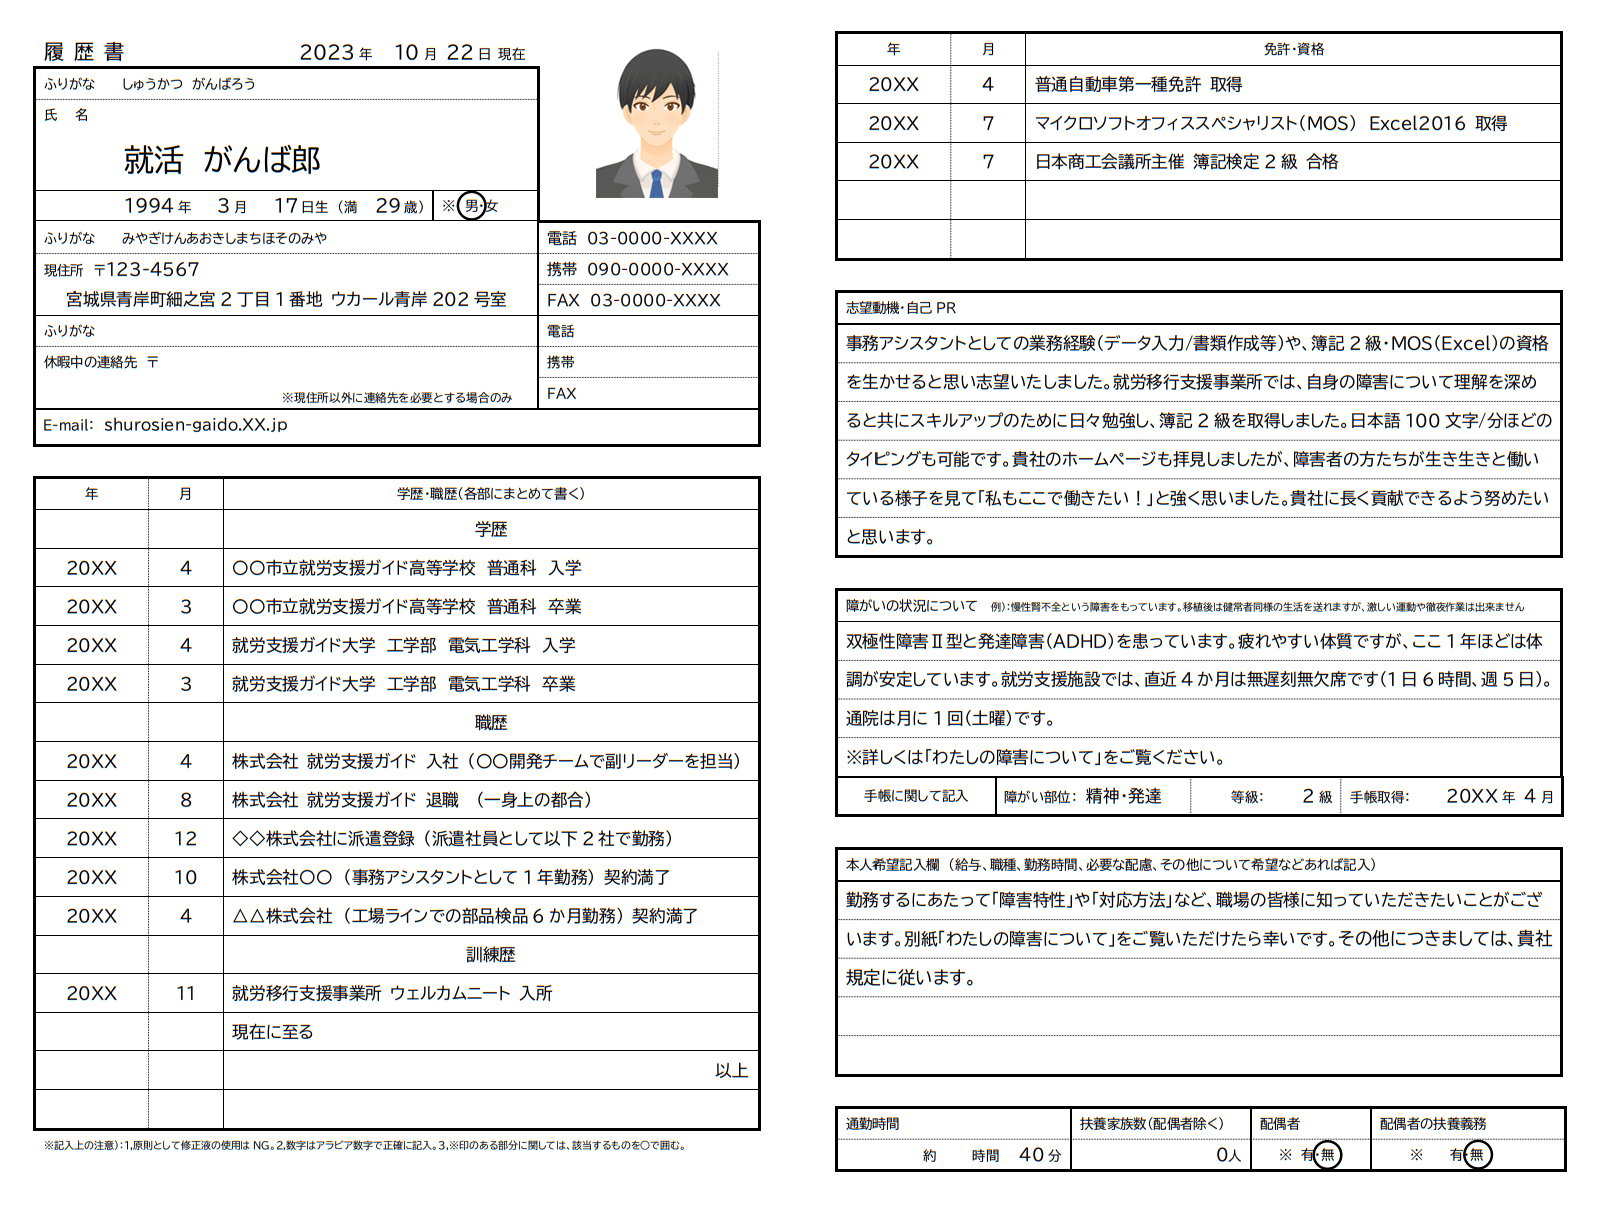 履歴書 2023年 10月 22日 現在
ふりがな しゅうかつ がんばろう
氏 名
就活 がんば郎
1994年 3月 17日生（満 29歳） ※ 男・女
ふりがな みやぎけんあおきしまちほそのみや
電話 03-0000-XXXX
現住所 〒123-4567
携帯 090-0000-XXXX
宮城県青岸町細之宮2丁目1番地 ウカール青岸202号室
FAX 03-0000-XXXX
ふりがな
電話
休暇中の連絡先 〒
携帯
※現住所以外に連絡先を必要とする場合のみ
FAX
E-mail: shurosien-gaido.XX.jp
年 月 学歴・職歴（各部にまとめて書く）
学歴
20XX 4 〇〇市立就労支援ガイド高等学校 普通科 入学
20XX 3 〇〇市立就労支援ガイド高等学校 普通科 卒業
20XX 4 就労支援ガイド大学 工学部 電気工学科 入学
20XX 3 就労支援ガイド大学 工学部 電気工学科 卒業
職歴
20XX 4 株式会社 就労支援ガイド 入社（〇〇開発チームで副リーダーを担当）
20XX 8 株式会社 就労支援ガイド 退職 （一身上の都合）
20XX 12 ◇◇株式会社に派遣登録（派遣社員として以下2社で勤務）
20XX 10 株式会社〇〇（事務アシスタントとして1年勤務）契約満了
20XX 4 △△株式会社（工場ラインでの部品検品6か月勤務）契約満了
訓練歴
20XX 11 就労移行支援事業所 ウェルカムニート 入所
現在に至る
以上
※記入上の注意）：1,原則として修正液の使用はNG。2,数字はアラビア数字で正確に記入。3,※印のある部分に関しては、該当するものを〇で囲む。
年 月 免許・資格
20XX 4 普通自動車第一種免許 取得
20XX 7 マイクロソフトオフィススペシャリスト（MOS） Excel2016 取得
20XX 7 日本商工会議所主催 簿記検定2級 合格
志望動機・自己PR
事務アシスタントとしての業務経験（データ入力/書類作成等）や、簿記2級・MOS（Excel）の資格
を生かせると思い志望いたしました。就労移行支援事業所では、自身の障害について理解を深め
ると共にスキルアップのために日々勉強し、簿記2級を取得しました。日本語100文字/分ほどの
タイピングも可能です。貴社のホームページも拝見しましたが、障害者の方たちが生き生きと働い
ている様子を見て「私もここで働きたい！」と強く思いました。貴社に長く貢献できるよう努めたい
と思います。
障がいの状況について 例）：慢性腎不全という障害をもっています。移植後は健常者同様の生活を送れますが、激しい運動や徹夜作業は出来ません
双極性障害Ⅱ型と発達障害（ADHD）を患っています。疲れやすい体質ですが、ここ1年ほどは体
調が安定しています。就労支援施設では、直近4か月は無遅刻無欠席です（1日6時間、週5日）。
通院は月に1回（土曜）です。
※詳しくは「わたしの障害について」をご覧ください。
手帳に関して記入 障がい部位： 精神・発達 等級： 2級 手帳取得： 20XX年 4月
本人希望記入欄（給与、職種、勤務時間、必要な配慮、その他について希望などあれば記入）
勤務するにあたって「障害特性」や「対応方法」など、職場の皆様に知っていただきたいことがござ
います。別紙「わたしの障害について」をご覧いただけたら幸いです。その他につきましては、貴社
規定に従います。
通勤時間 扶養家族数（配偶者除く） 配偶者 配偶者の扶養義務
約 時間 40分 0人 ※ 有・無 ※ 有・無